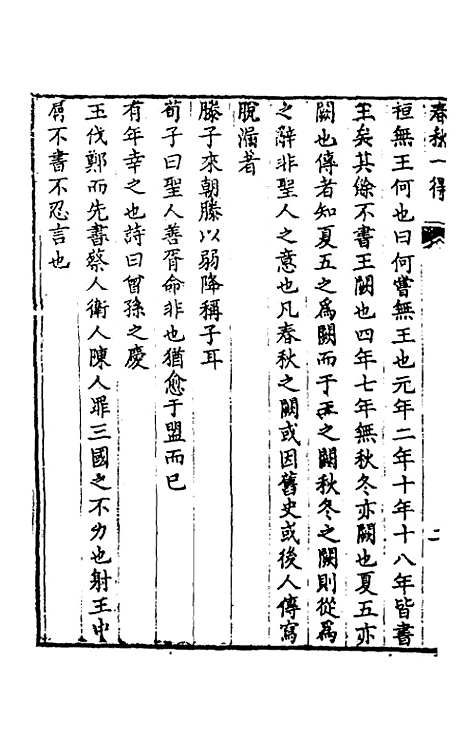 春秋一得
二
桓無王何也曰何嘗無王也元年二年十年十八年皆書
王矣其餘不書王闕也四年七年無秋冬亦闕也夏五亦
闕也傳者知夏五之為闕而于王之闕秋冬之闕則從為
之辭非聖人之意也凡春秋之闕或因舊史或後人傳寫
脫漏者
滕子來朝滕以弱降稱子耳
荀子曰聖人善胥命非也猶愈于盟而已
有年幸之也詩曰曾孫之慶
王伐鄭而先書蔡人衛人陳人罪三國之不力也射王中
肩不書不忍言也